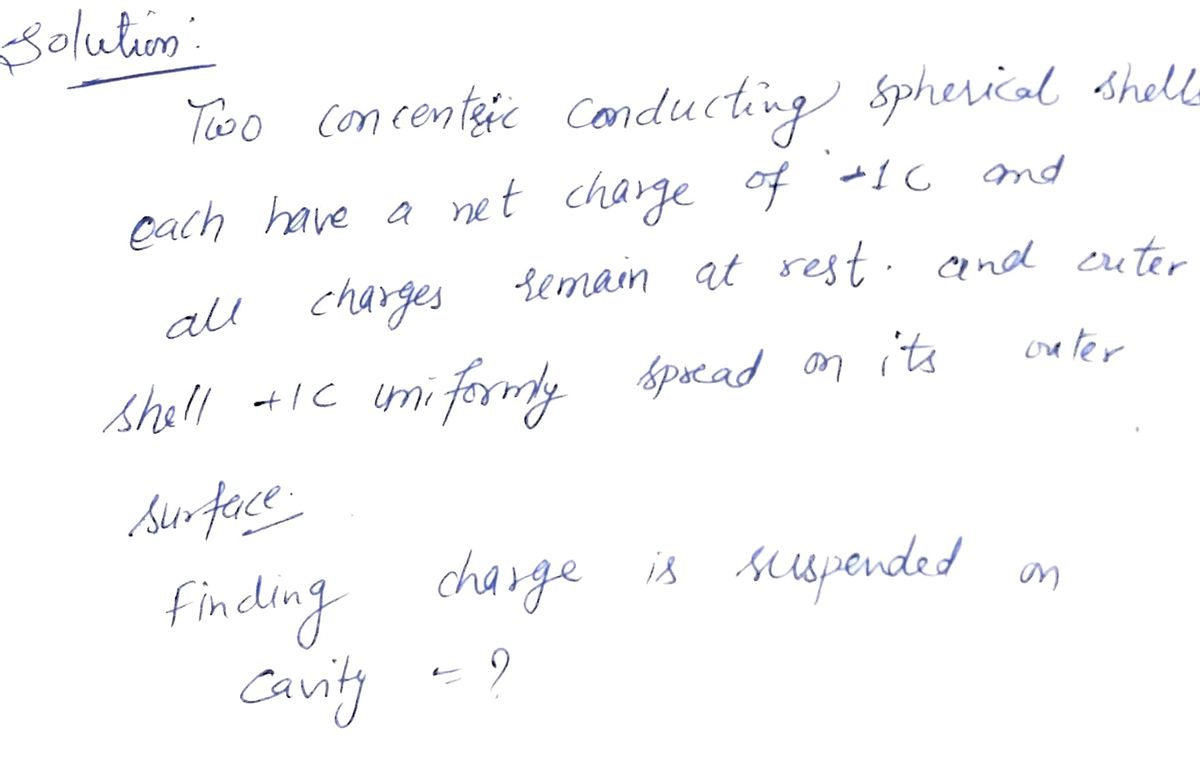 Solution:
Two concentric conducting spherical shells
each have a net charge of +1C and
all charges remain at rest. and outer
shell +1C uniformly spread on its outer
surface.
Finding charge is suspended on
Cavity = ?